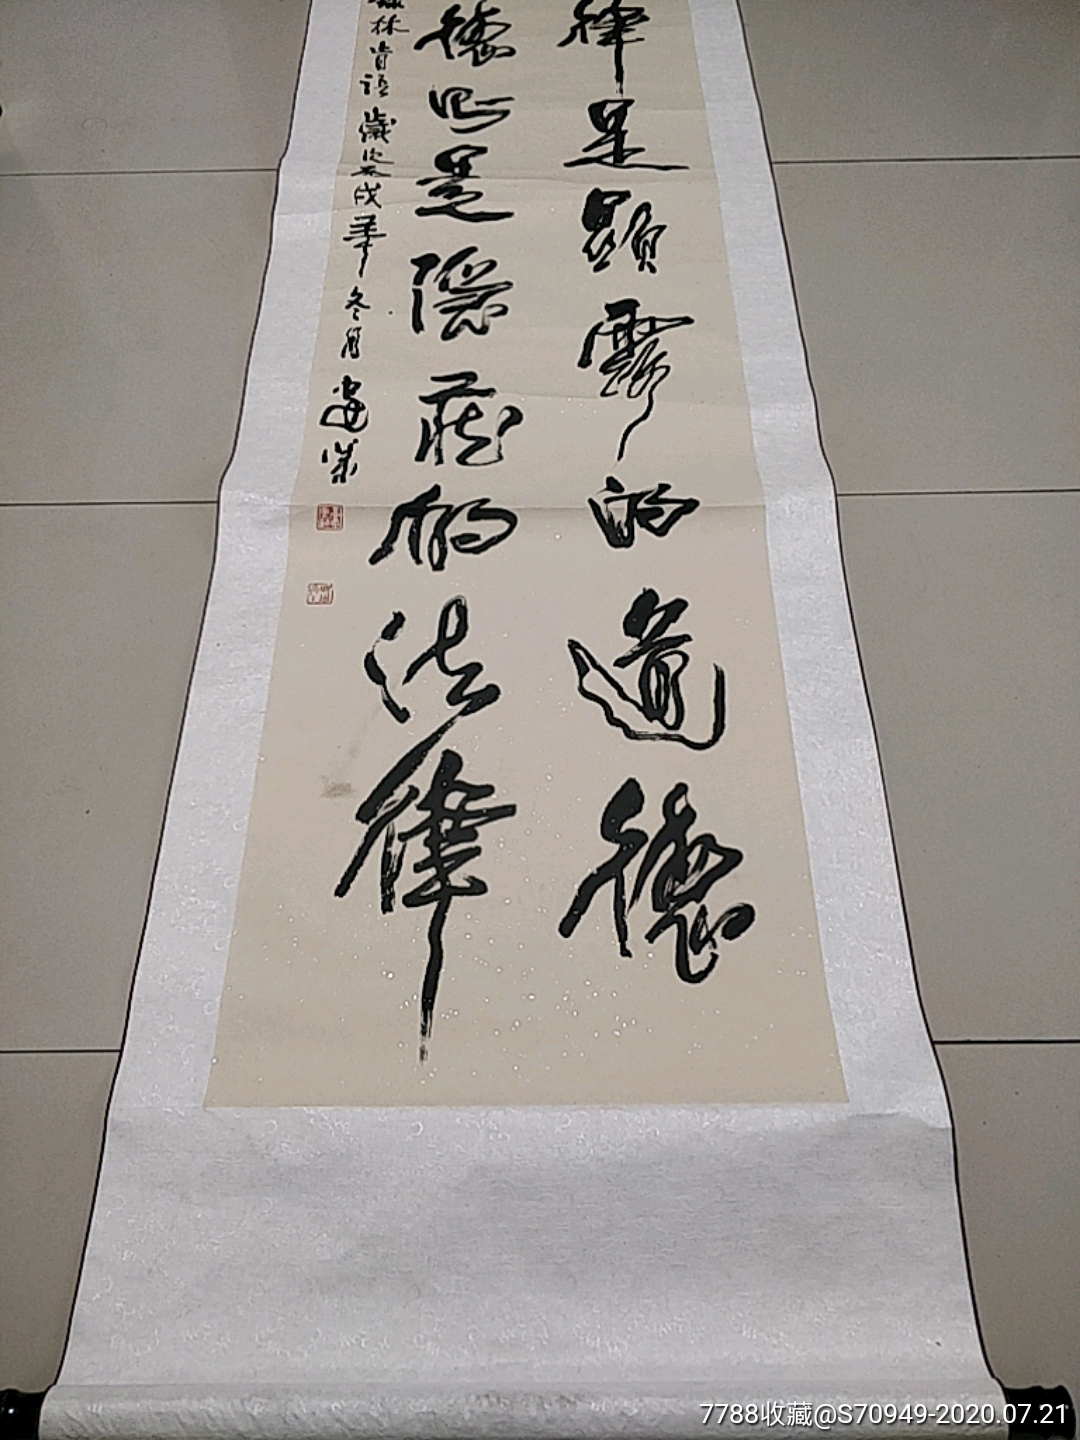 律是顯露的道德
德則是隱藏的法律
林肯語歲次戊年冬月建成
7788收藏@S70949-2020.07.21